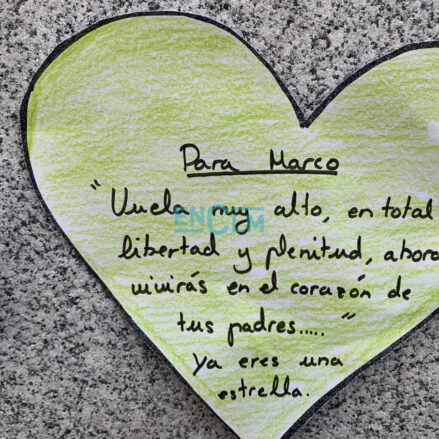 Para Marco
"Vuela muy alto, en total
libertad y plenitud, ahora
vivirás en el corazón de
tus padres....."
Ya eres una
estrella.
ENCLM